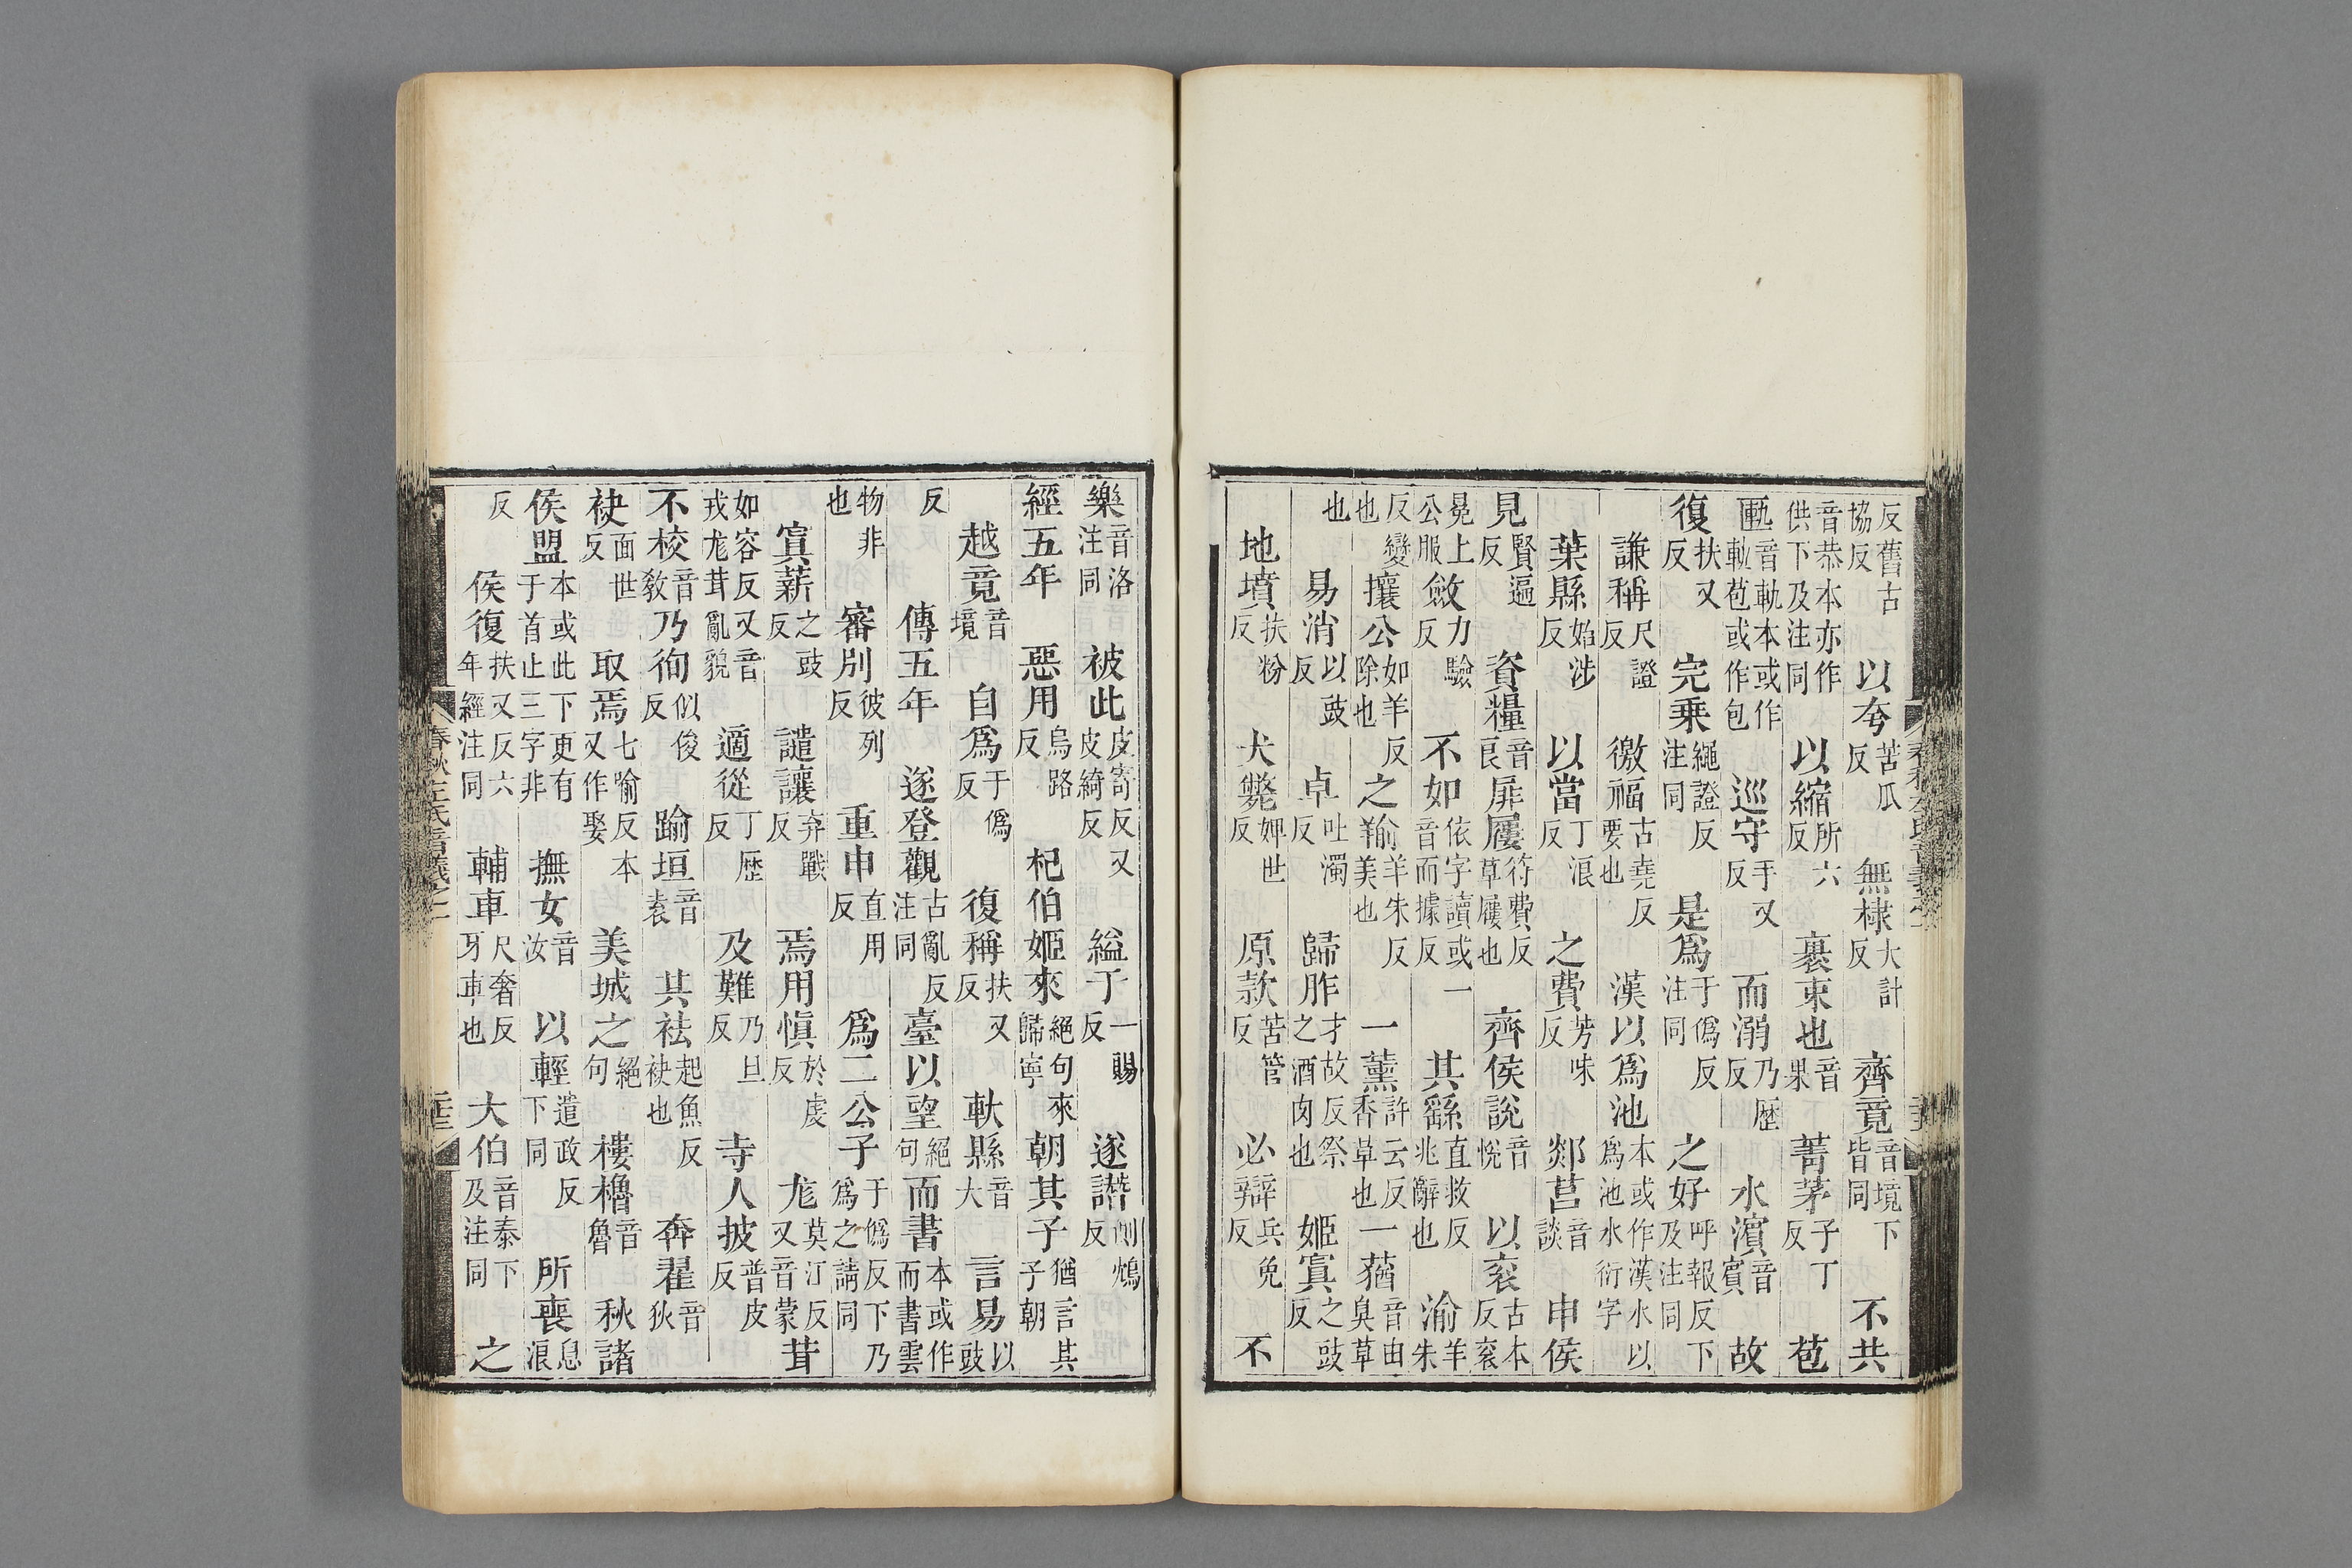 反舊古協反 以夸苦瓜反 無棣大計反 齊竟音境下皆同 不共
音恭本亦作供下及注同 以縮所六反 裹束也音果 菁茅子丁反 苞
匭音軌本或作軌苞或作包 巡守手又反 而溺乃歷反 水濱音賓 故
復扶又反 完乗繩證反注同 是爲于僞反注同 之好呼報反下及注同
謙稱尺證反 徼福古堯反要也 漢以爲池本或作漢水以爲池水衍字
葉縣始涉反 以當丁浪反 之費芳味反 郯莒音談 申侯
見賢遍反 資糧音良 扉屨符費反草屨也 齊侯說音悅 以衮古本反衮
冕上公服 斂力驗反 不如依字讀或一音而據反 其繇直救反兆辭也 渝羊朱
反變也 攘公如羊反除也 之羭羊朱反美也 一薰許云反香草也 一蕕音由臭草
也 易消以豉反 卓吐濁反 歸胙才故反祭之酒肉也 姬寘之豉反
地墳扶粉反 犬斃婢世反 原款苦管反 必辯兵免反 不
樂音洛注同 被此皮寄反又皮綺反 縊于一賜反 遂譖側鴆反
經五年 惡用烏路反 杞伯姬來絕句來歸寧 朝其子猶言其子朝
越竟音境 自爲于僞反 復稱扶又反 軑縣音大 言易以豉
反 傳五年 遂登觀古亂反注同 臺以望絕句 而書本或作而書雲
物非也 審別彼列反 重申直用反 爲二公子于僞反下乃爲之請同
寘薪之豉反 譴讓弃戰反 焉用愼於虔反 尨莫江反又音蒙 茸
如容反又音戎尨茸亂貌 適從丁歷反 及難乃旦反 寺人披普皮反
不校音教 乃徇似俊反 踰垣音袁 其袪起魚反袂也 奔翟音狄
袂面世反 取焉七喻反本又作娶 美城之絕句 樓櫓音魯 秋諸
侯盟本或此下更有于首止三字非 撫女音汝 以輕遣政反下同 所喪息浪
反 侯復扶又反六年經注同 輔車尺奢反牙車也 大伯音泰下及注同 之
春秋左氏音義之一